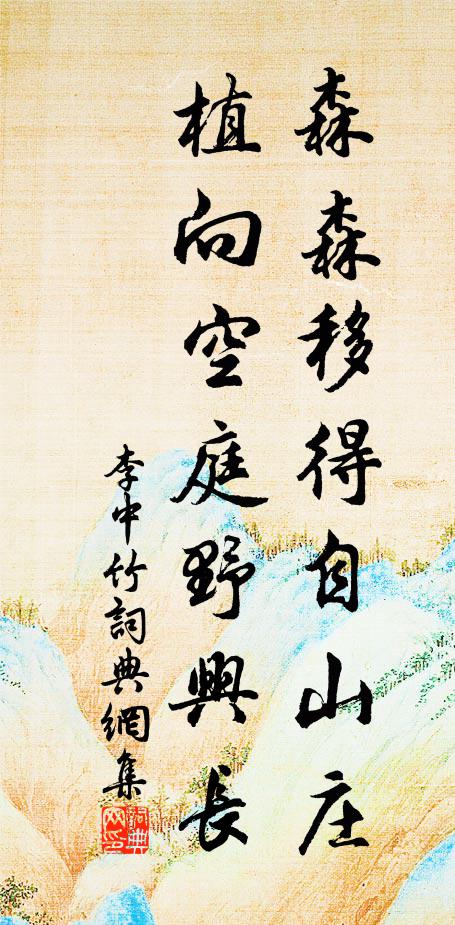 森森移得自山庄
植向空庭野興長
李中竹詞典網集
詞典網印